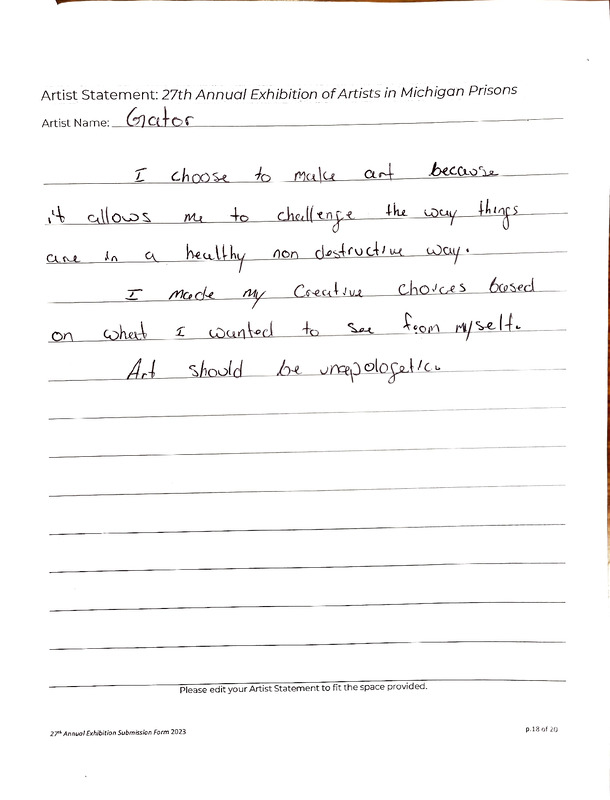 Artist Statement: 27th Annual Exhibition of Artists in Michigan Prisons
Artist Name: Gator
I choose to make art because
it allows me to challenge the way things
are in a healthy non destructive way.
I made my Creative choices based
on what I wanted to see from myself.
Art should be unapologetic.
Please edit your Artist Statement to fit the space provided.
27th Annual Exhibition Submission Form 2023
p.18 of 20